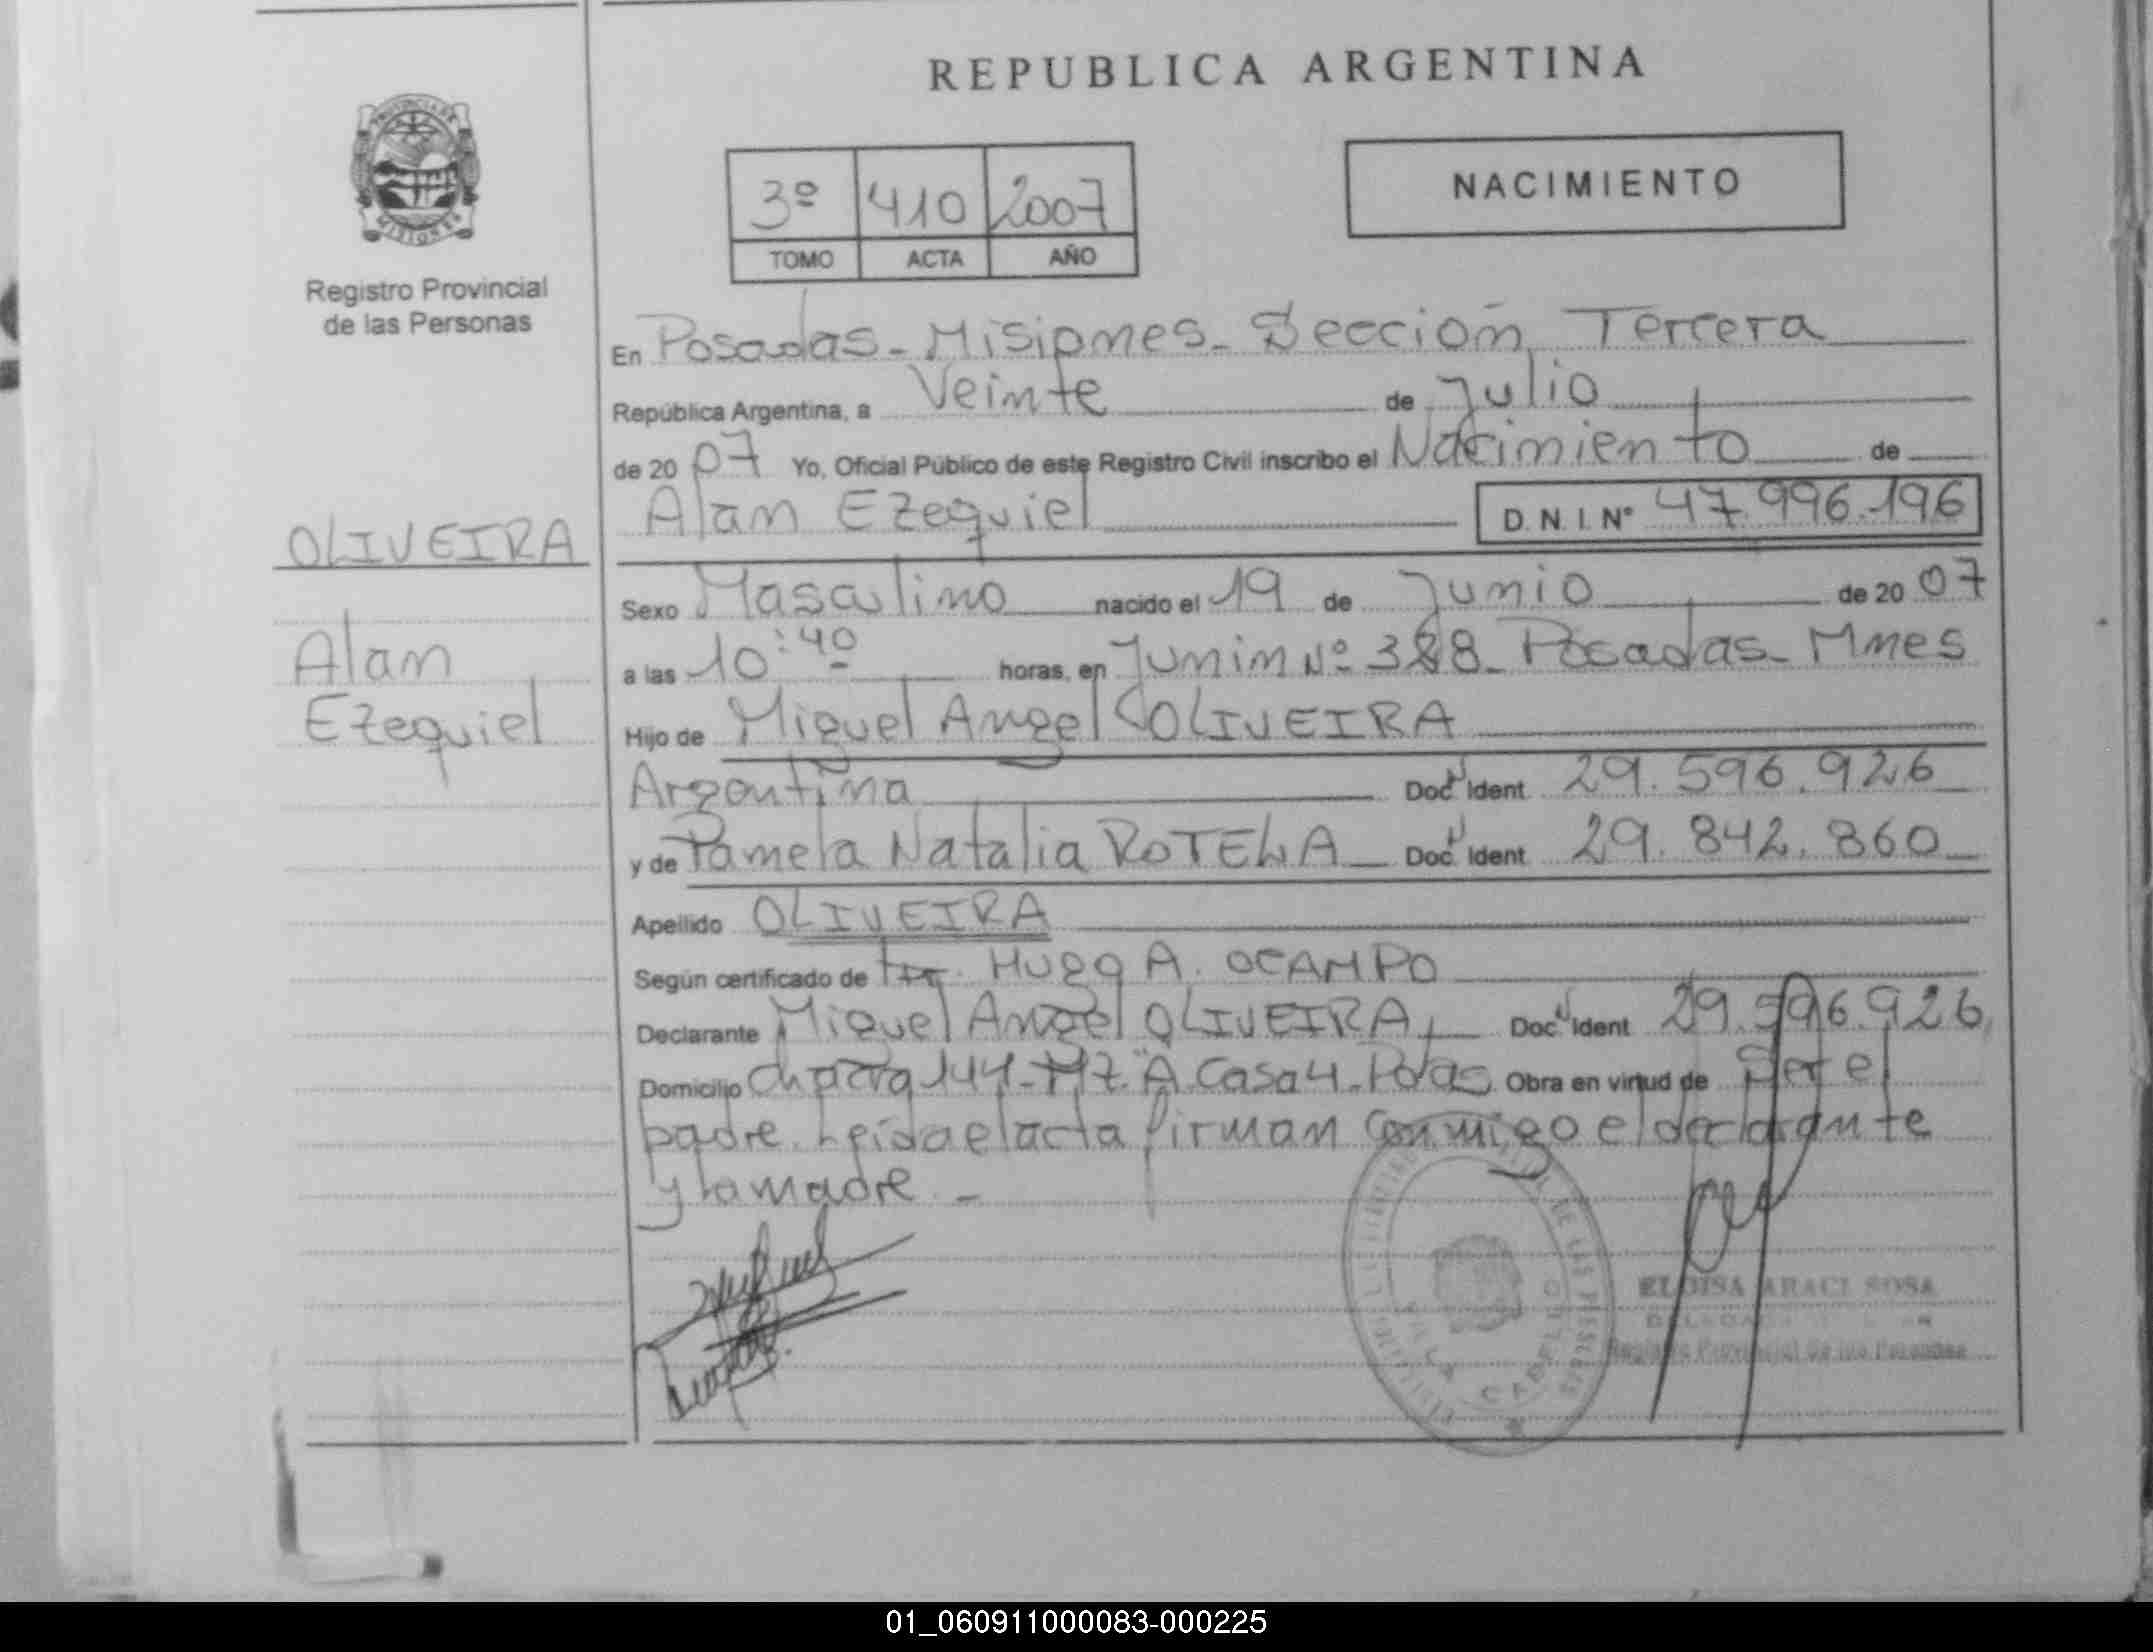 REPUBLICA ARGENTINA
PROVINCIA DE
MISIONES
Registro Provincial
de las Personas
3º 410 2007
TOMO ACTA AÑO
NACIMIENTO
En Posadas - Misiones - Sección Tercera
República Argentina, a Veinte de Julio
de 20 07 Yo, Oficial Público de este Registro Civil inscribo el Nacimiento de
Alan Ezequiel D.N.I. Nº 47.996.196
OLIVEIRA
Alan
Ezequiel
Sexo Masculino nacido el 19 de Junio de 20 07
a las 10:40 horas, en Junin Nº 388 - Posadas - Mnes
Hijo de Miguel Angel OLIVEIRA
Argentina Doc Ident 29.596.926
y de Pamela Natalia ROTELA Doc Ident 29.842.860
Apellido OLIVEIRA
Según certificado de Hugo A. OCAMPO
Declarante Miguel Angel OLIVEIRA, Doc Ident 29.596.926
Domicilio Chacra 144 - Mz. "A" Casa 4 - Pdas Obra en virtud de Ser el
padre. Leida el acta firman conmigo el declarante
y la madre. -
DE LAS PERSONAS
VILLA CABELLO
ELOISA ARACI SOSA
DELEGADA
Registro Provincial de las Personas
01_060911000083-000225